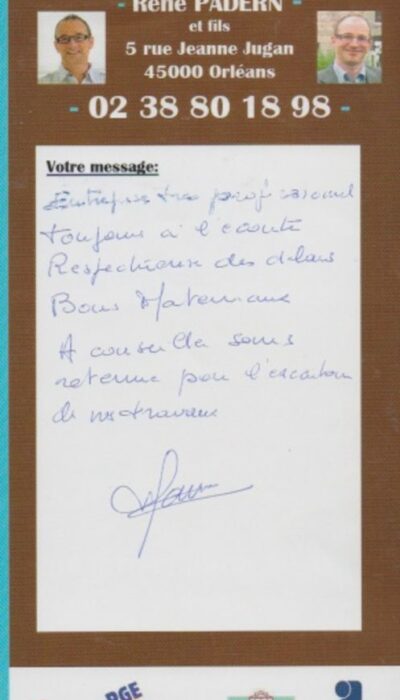 - René PADERN -
et fils
5 rue Jeanne Jugan
45000 Orléans
- 02 38 80 18 98 -
Votre message:
Entreprise tres professionnel
toujours à l'écoute
Respectueuse des délais
Bons Materiaux
A conseiller sans
retenue pour l'exécution
de nos travaux
RGE